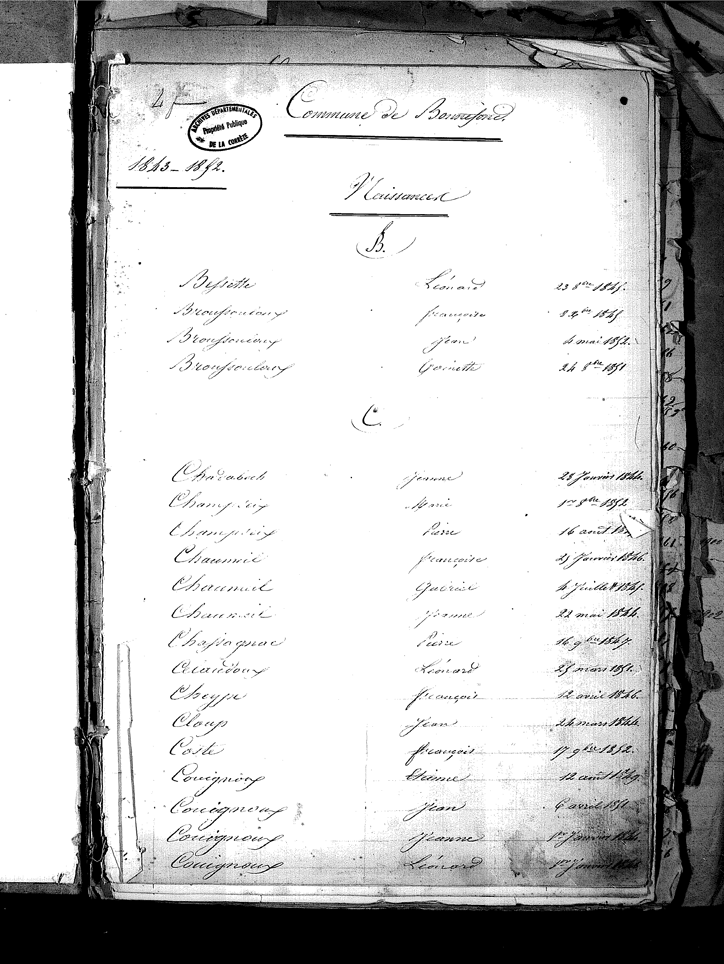 Commune de Bonnefond
ARCHIVES DÉPARTEMENTALES
Propriété Publique
DE LA CORRÈZE
1843 - 1852.
Naissances
B.
Bessette Léonard 23 8bre 1845.
Broussouloux françoise
Broussouloux Jean 4 mai 1852.
Broussouloux Toinette 24 8bre 1851
C.
Chadabech Jeanne 28 Janvier 1844.
Champseix Marie 1er 8bre 1852
Champseix Pierre 16 août
Chaumeil françoise 25 Janvier 1846.
Chaumeil Gabriel 4 Juillet 1845.
Chaumeil Jeanne 22 mai 1844.
Chassagnac Pierre 16 9bre 1847.
Léonard 25 mars 1851.
Cheype françois 12 avril 1846.
Cloup Jean 24 mars 1844.
Coste françois 17 9bre 1852.
Couignoux Etienne 12 août 1849.
Couignoux Jean 6 avril 1851
Couignoux Jeanne 1er Janvier
Couignoux Léonard 1er Janvier